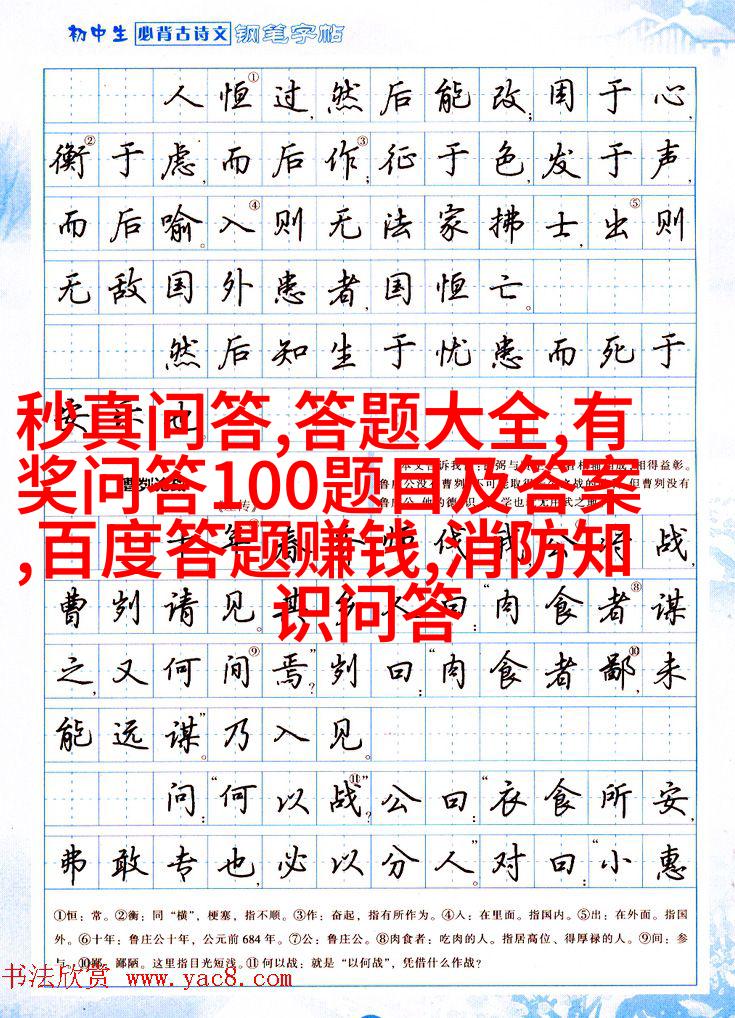 初中生 必背古诗文 钢笔字帖
人恒①过,然后能改;困于心,
衡②于虑,而后作③;征于色,发于声,
而后喻。入④则无法家拂士,出⑤则
无敌国外患者,国恒亡。
然后知生于忧患而死于
安 也
秒真问答,答题大全,有
奖问答100题目及答案
,百度答题赚钱,消防知
识问答
战,
曹刿请见。其乡人曰:“肉食者⑧谋
之,又何间⑨焉?”刿曰:“肉食者鄙⑩,未
能远谋。”乃入见。
问:“何以战⑪?”公曰:“衣食所安,
弗敢专也,必以分人。”对曰:“小惠
①恒:常。②衡:同“横”,梗塞,指不顺。③作:奋起,指有所作为。④入:在里面。指国内。⑤出:在外面。指国
外。⑥十年:鲁庄公十年,公元前684年。⑦公:鲁庄公。⑧肉食者:吃肉的人。指居高位、得厚禄的人。⑨间:参
与。⑩鄙:鄙陋。这里指目光短浅。⑪何以战:就是“以何战”,凭借什么作战?
书法欣赏 www.yac8.com